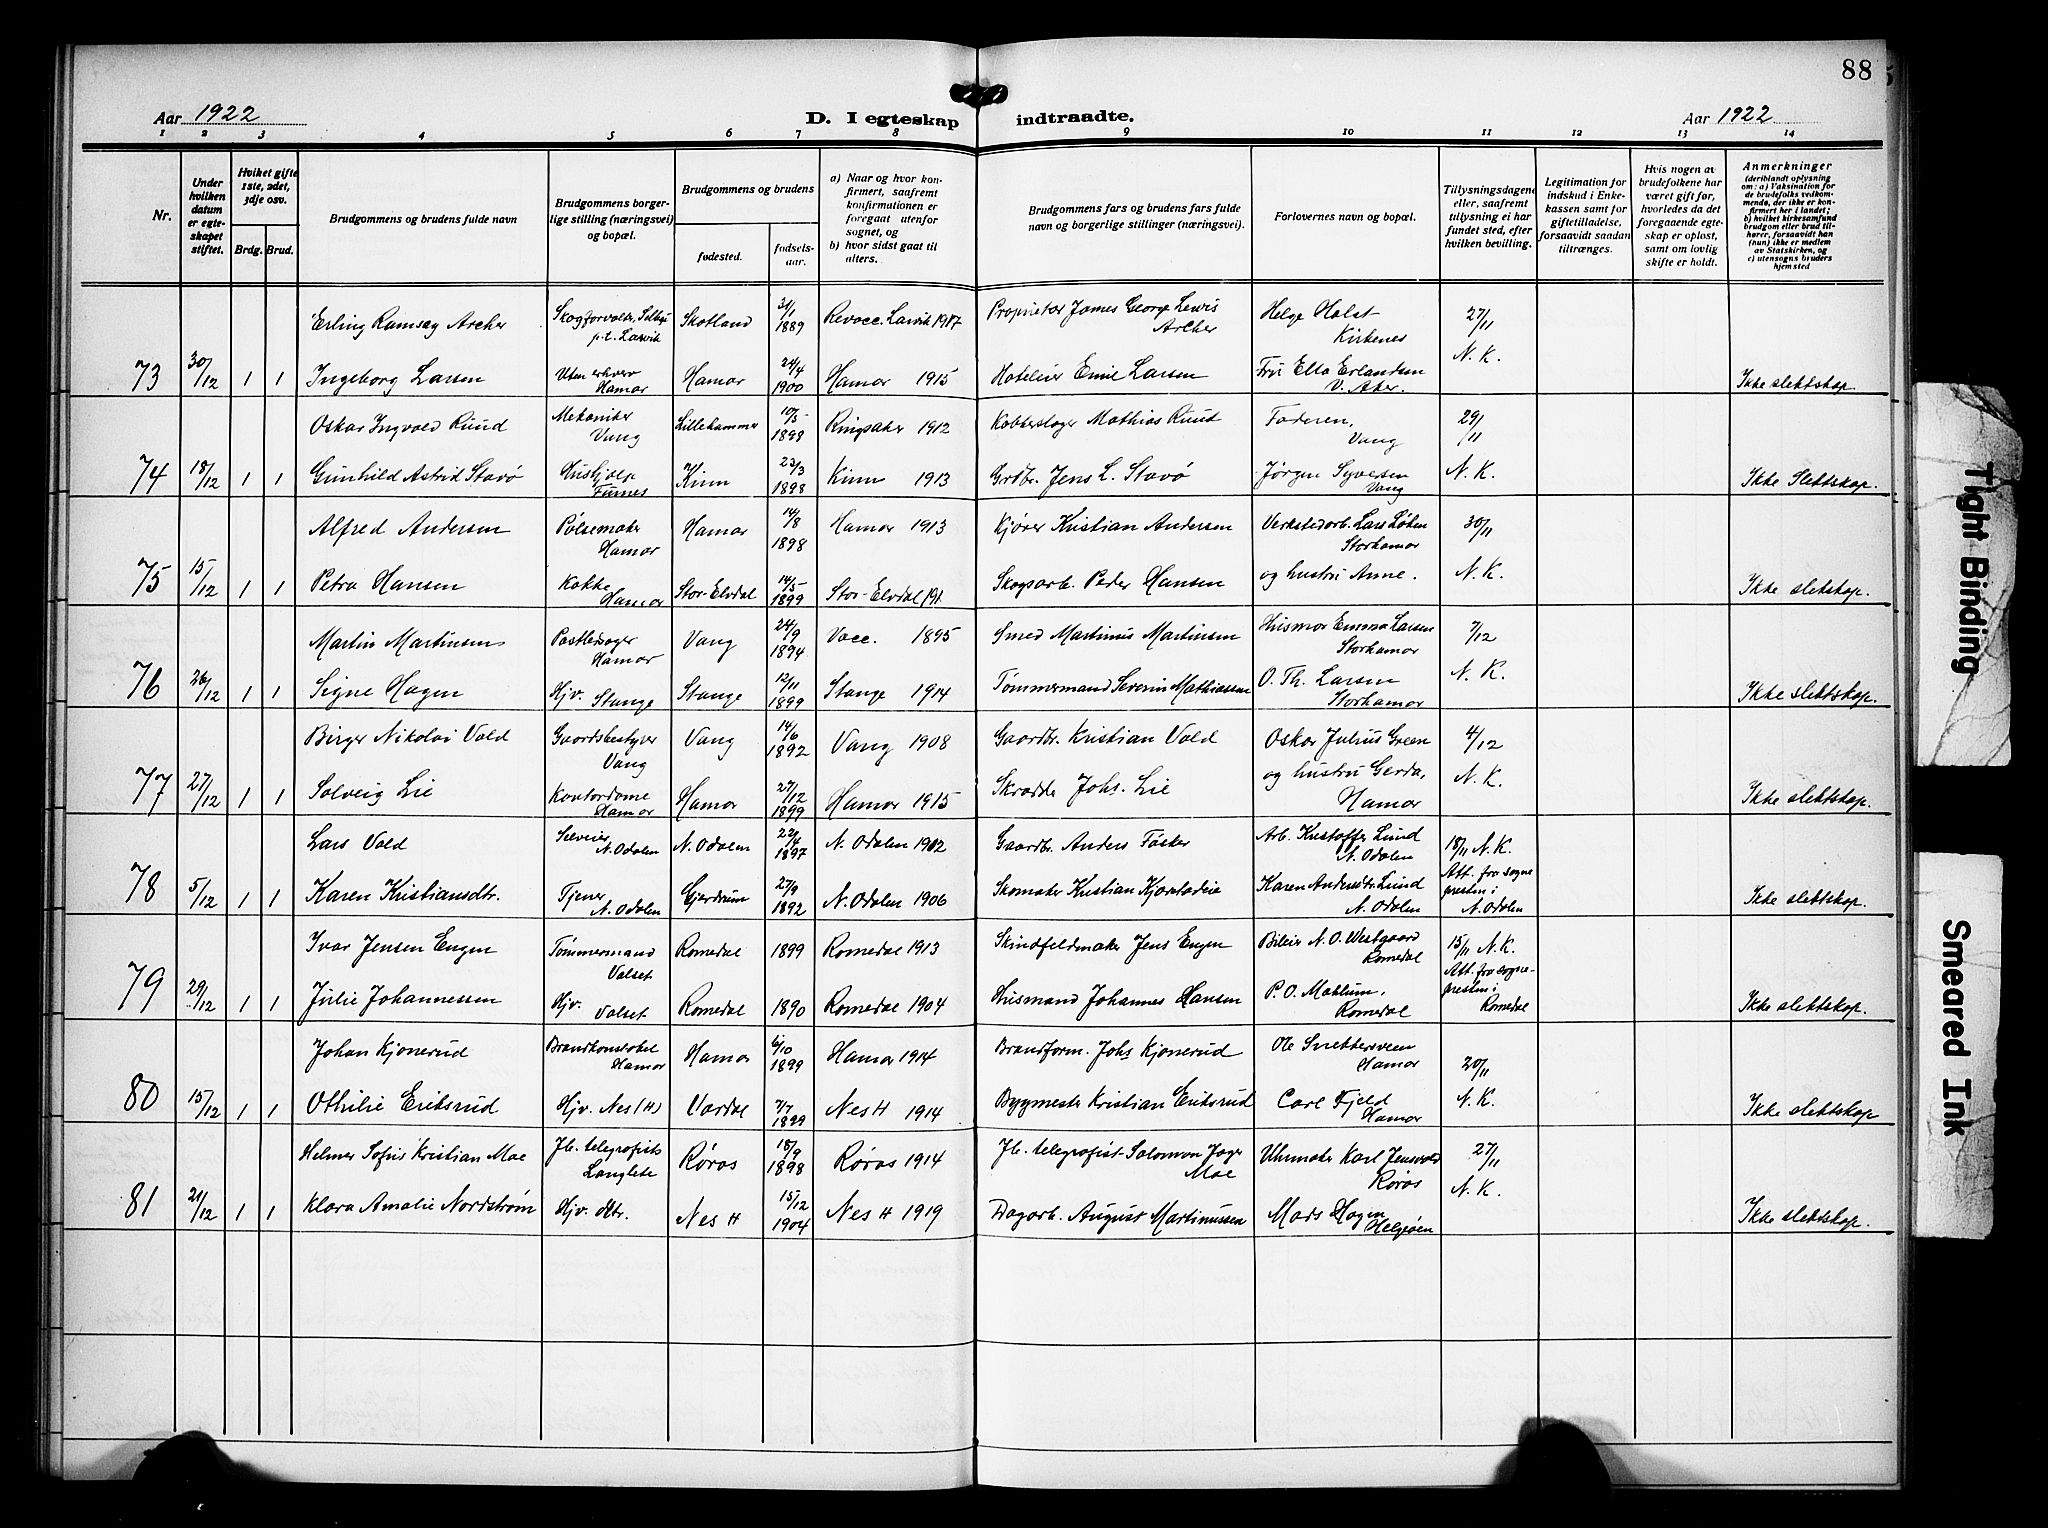 88
Aar 1922
D. I egteskap indtraadte.
Aar 1922
1 2 3 4 5 6 7 8 9 10 11 12 13 14
Nr.
Under hvilken datum er egteskapet stiftet.
Hvilket gifte 1ste, 2det, 3dje osv.
Brdg. Brud.
Brudgommens og brudens fulde navn
Brudgommens borgerlige stilling (næringsvei) og bopæl.
Brudgommens og brudens
fødested.
fødselsaar.
a) Naar og hvor konfirmert, saafremt konfirmationen er foregaat utenfor sognet, og
b) hvor sidst gaat til alters.
Brudgommens fars og brudens fars fulde navn og borgerlige stillinger (næringsvei).
Forlovernes navn og bopæl.
Tillysningsdagene eller, saafremt tillysning ei har fundet sted, efter hvilken bevilling.
Legitimation for indskud i Enkekassen samt for giftetilladelse, forsaavidt saadan tiltrænges.
Hvis nogen av brudefolkene har været gift før, hvorledes da det foregaaende egteskap er opløst, samt om lovlig skifte er holdt.
Anmerkninger (deriblandt oplysning om: a) Vaksination for de brudefolks vedkommende, der ikke er konfirmert her i landet; b) hvilket kirkesamfund brudgom eller brud tilhører, forsaavidt han (hun) ikke er medlem av Statskirken, og c) utensogns bruders hjemsted
Erling Ramsay Archer Skogforvalter, p.t. Larvik Skotland 31/1 1889 Revacc. Larvik 1917 Proprietær James George Lewis Archer Helge Holst Kirkenes 27/11
73 30/12 1 1 Ingeborg Larsen Uten erhverv Hamar Hamar 24/4 1900 Hamar 1915 Hotelier Emil Larsen Fru Ella Erlandsen V. Aker. N. K. Ikke slektskap.
Oskar Ingvald Ruud Mekaniker Vang Lillehammer 10/5 1898 Ringsaker 1912 Kobberslager Mathias Ruud Faderen, Vang 29/11
74 18/12 1 1 Gunhild Astrid Stavø Hushjelp Furnes Kinn 23/3 1898 Kinn 1913 Grdbr. Jens L. Stavø Jørgen Syversen Vang N. K. Ikke Slektskap.
Alfred Andersen Pølsemaker Hamar Hamar 14/8 1898 Hamar 1913 Kjører Kristian Andersen Verkstedarb. Lars Løten Storhamar 30/11
75 15/12 1 1 Petra Hansen Kokke Hamar Stor-Elvdal 14/5 1899 Stor-Elvdal 191 Skogsarb. Peder Hansen og hustru Anne. N. K. Ikke slektskap.
Martin Martinsen Postledsager Hamar Vang 24/9 1894 Vacc. 1895 Smed Martinus Martinsen Husmor Emma Larsen Storhamar 7/12
76 26/12 1 1 Signe Hagen Hjv. Stange Stange 12/11 1899 Stange 1914 Tømmermand Severin Mathiassen O. Th. Larsen Storhamar N. K. Ikke slektskap.
Birger Nikolai Vold Gaardsbestyrer Vang Vang 14/6 1892 Vang 1908 Gaardbr. Kristian Vold Oskar Julius Green 4/12
77 27/12 1 1 Solveig Lie Kontordame Hamar Hamar 27/12 1899 Hamar 1915 Skrædder Johs. Lie og hustru Gerda, Hamar N. K. Ikke slektskap.
Lars Vold Selveier N. Odalen N. Odalen 22/4 1897 N. Odalen 1912 Gaardbr. Anders Fåsker Arb. Kristoffer Lund N. Odalen 18/11 N. K.
78 5/12 1 1 Karen Kristiansdtr. Tjener N. Odalen Gjerdrum 27/9 1892 N. Odalen 1906 Skomaker Kristian Karen Andersdtr. Lund N. Odalen Att. fra sognepresten i N. Odalen Ikke slektskap.
Ivar Jensen Engen Tømmermand Valset Romedal 1899 Romedal 1913 Skindfeldmaker Jens Engen Bileier N. O. Westgaard Romedal 15/11 N. K.
79 29/12 1 1 Julie Johannessen Hjv. Valset Romedal 1890 Romedal 1904 Husmand Johannes Hansen P. O. Mæhlum, Romedal Att. fra sognepresten i Romedal Ikke slektskap.
Johan Kjønerud Brandkonstabel Hamar Hamar 6/10 1899 Hamar 1914 Brandform. Johs Kjønerud Ole Snekkersveen Hamar 20/11
80 15/12 1 1 Othilie Eriksrud Hjv. Nes (H) Vardal 7/7 1899 Nes H 1914 Bygmester Kristian Eriksrud Carl Fjeld Hamar N. K. Ikke slektskap
Helmer Sofus Kristian Moe Jb. telegrafist Langlete Røros 18/9 1898 Røros 1914 Jb. telegrafist Salomon Jager Moe Uhrmaker Karl Jensvold Røros 27/11
81 21/12 1 1 Klara Amalie Nordstrøm Hjv. dtr. Nes H 15/12 1904 Nes H 1919 Dagarb. August Martinussen Mads Hagen Helgøen N. K. Ikke slektskap.
Tight Binding
Smeared Ink